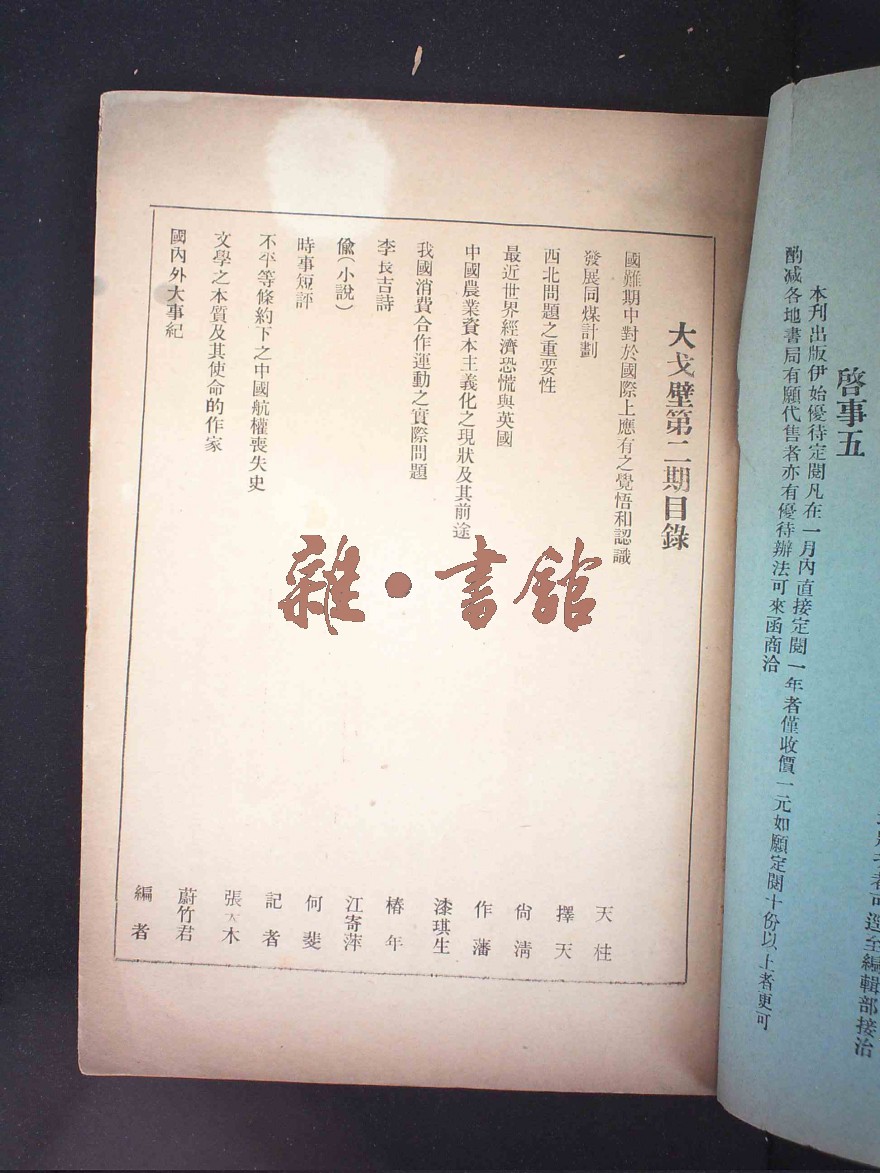 編輯部接洽
啓事五
本刊出版伊始優待定閱凡在一月內直接定閱一年者僅收價一元如願定閱十份以上者更可
酌减各地書局有願代售者亦有優待辦法可來函商洽
大戈壁第二期目錄
國難期中對於國際上應有之覺悟和認識 天柱
發展同煤計劃 擇天
西北問題之重要性 尙淸
最近世界經濟恐慌與英國 作藩
中國農業資本主義化之現狀及其前途 漆琪生
我國消費合作運動之實際問題 椿年
李長吉詩 江寄萍
偸（小說） 何斐
時事短評 記者
不平等條約下之中國航權喪失史 張天木
文學之本質及其使命的作家 蔚竹君
國內外大事紀 編者
雜·書館